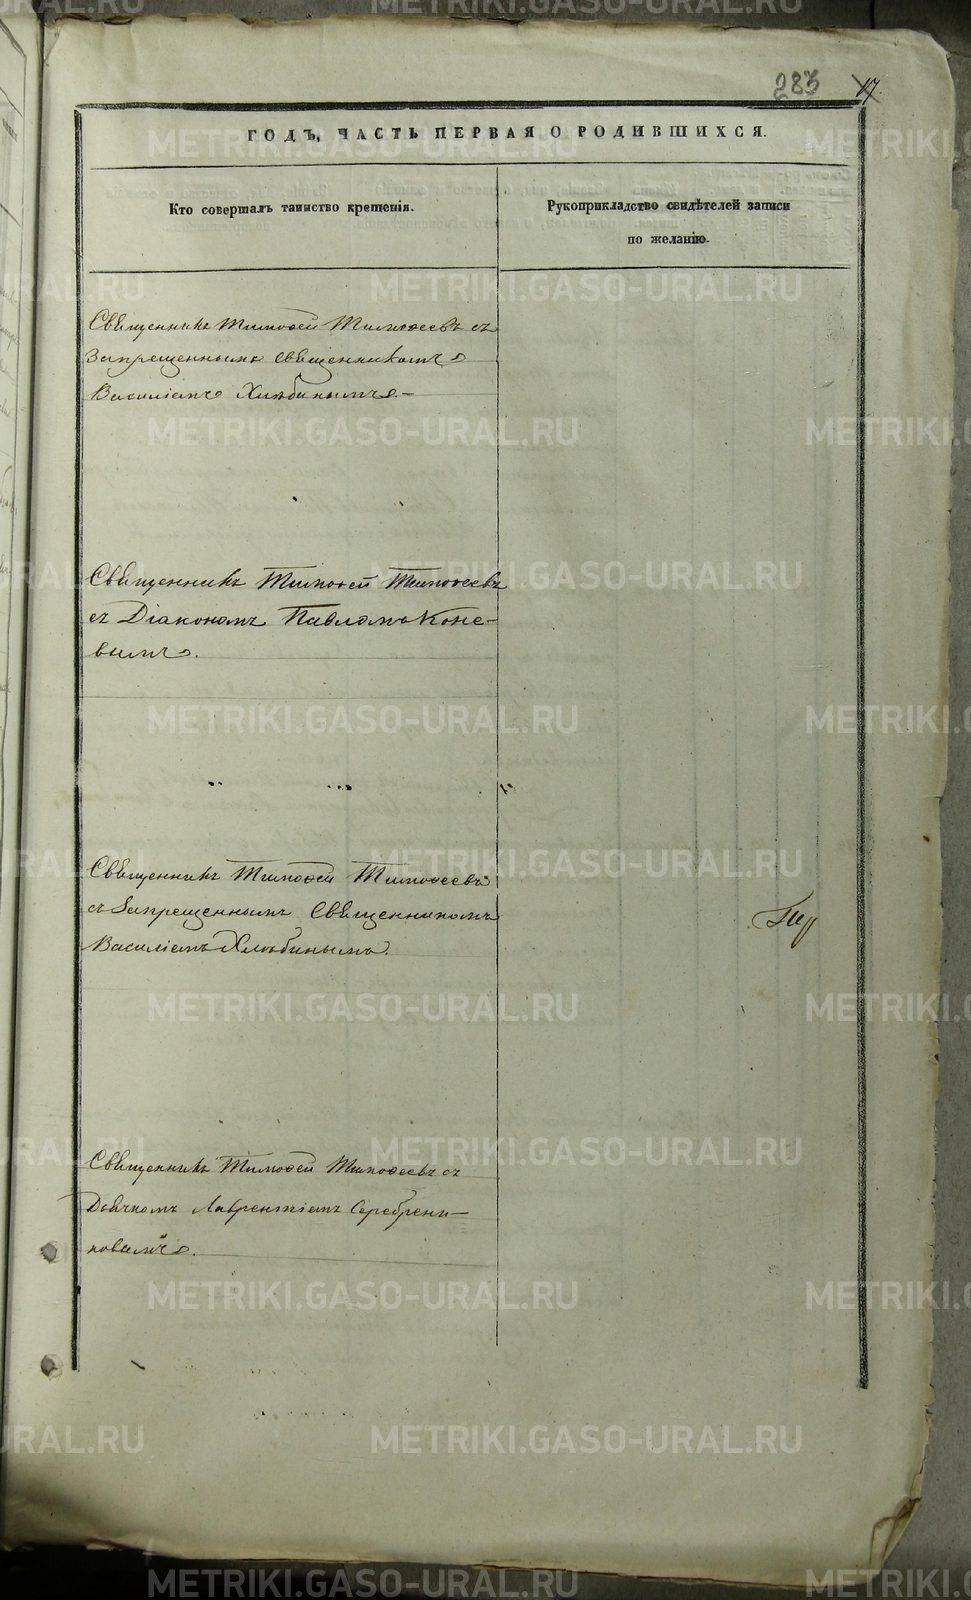 283 17.
ГОДЪ, ЧАСТЬ ПЕРВАЯ О РОДИВШИХСЯ.
Кто совершалъ таинство крещенія.
Рукоприкладство свидѣтелей записи
по желанію.
Священникъ Тимоѳей Тимоѳеевъ съ
Запрещеннымъ Священникомъ
Василіемъ Хлѣбинымъ.—
Священникъ Тимоѳей Тимоѳеевъ
съ Діакономъ Павломъ Коне-
вымъ.
Священникъ Тимоѳей Тимоѳеевъ
съ Запрещеннымъ Священникомъ
Василіемъ Хлѣбинымъ.
Священникъ Тимоѳей Тимоѳеевъ съ
Дьячкомъ Лаврентіемъ Серебрени-
ковымъ.
METRIKI.GASO-URAL.RU